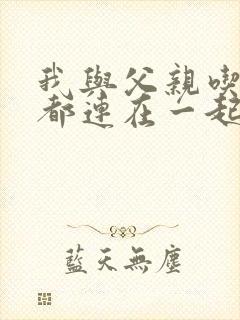 我與父親喫
都連在一起
藍天無塵